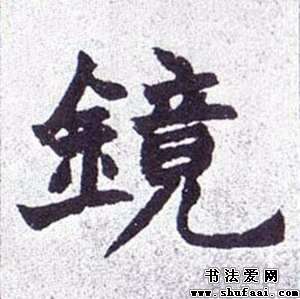 鏡
书法爱网
www.shufaai.com